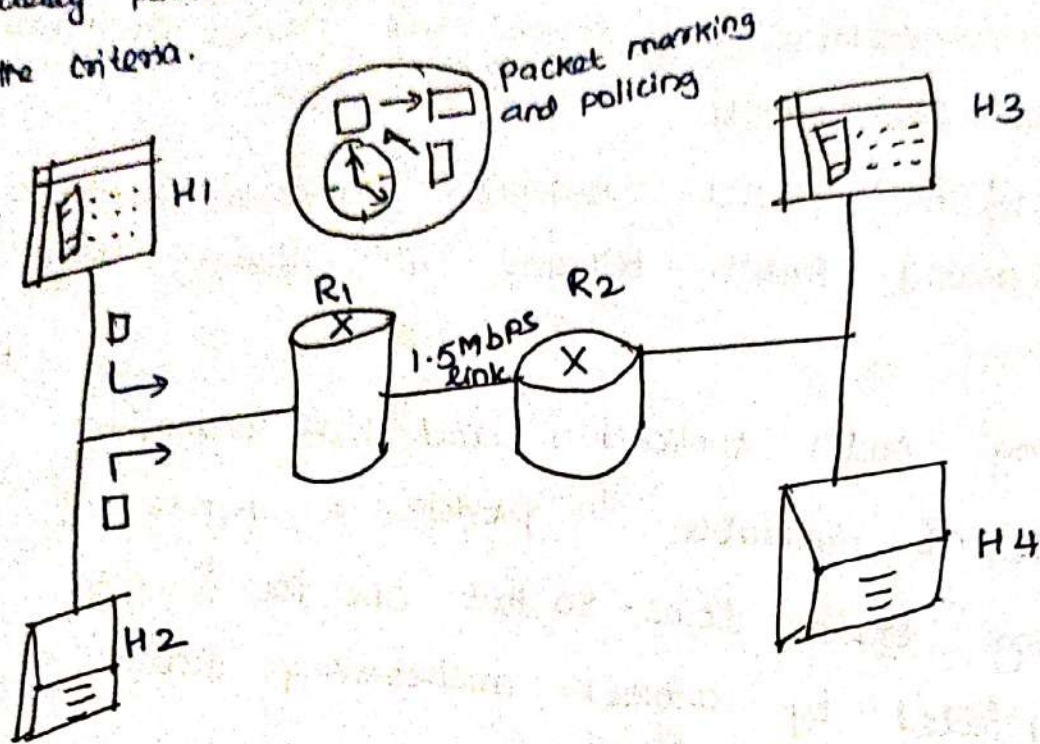 the criteria.
packet marking
and policing
H1
H3
R1
R2
1.5Mbps
link
X
X
H2
H4